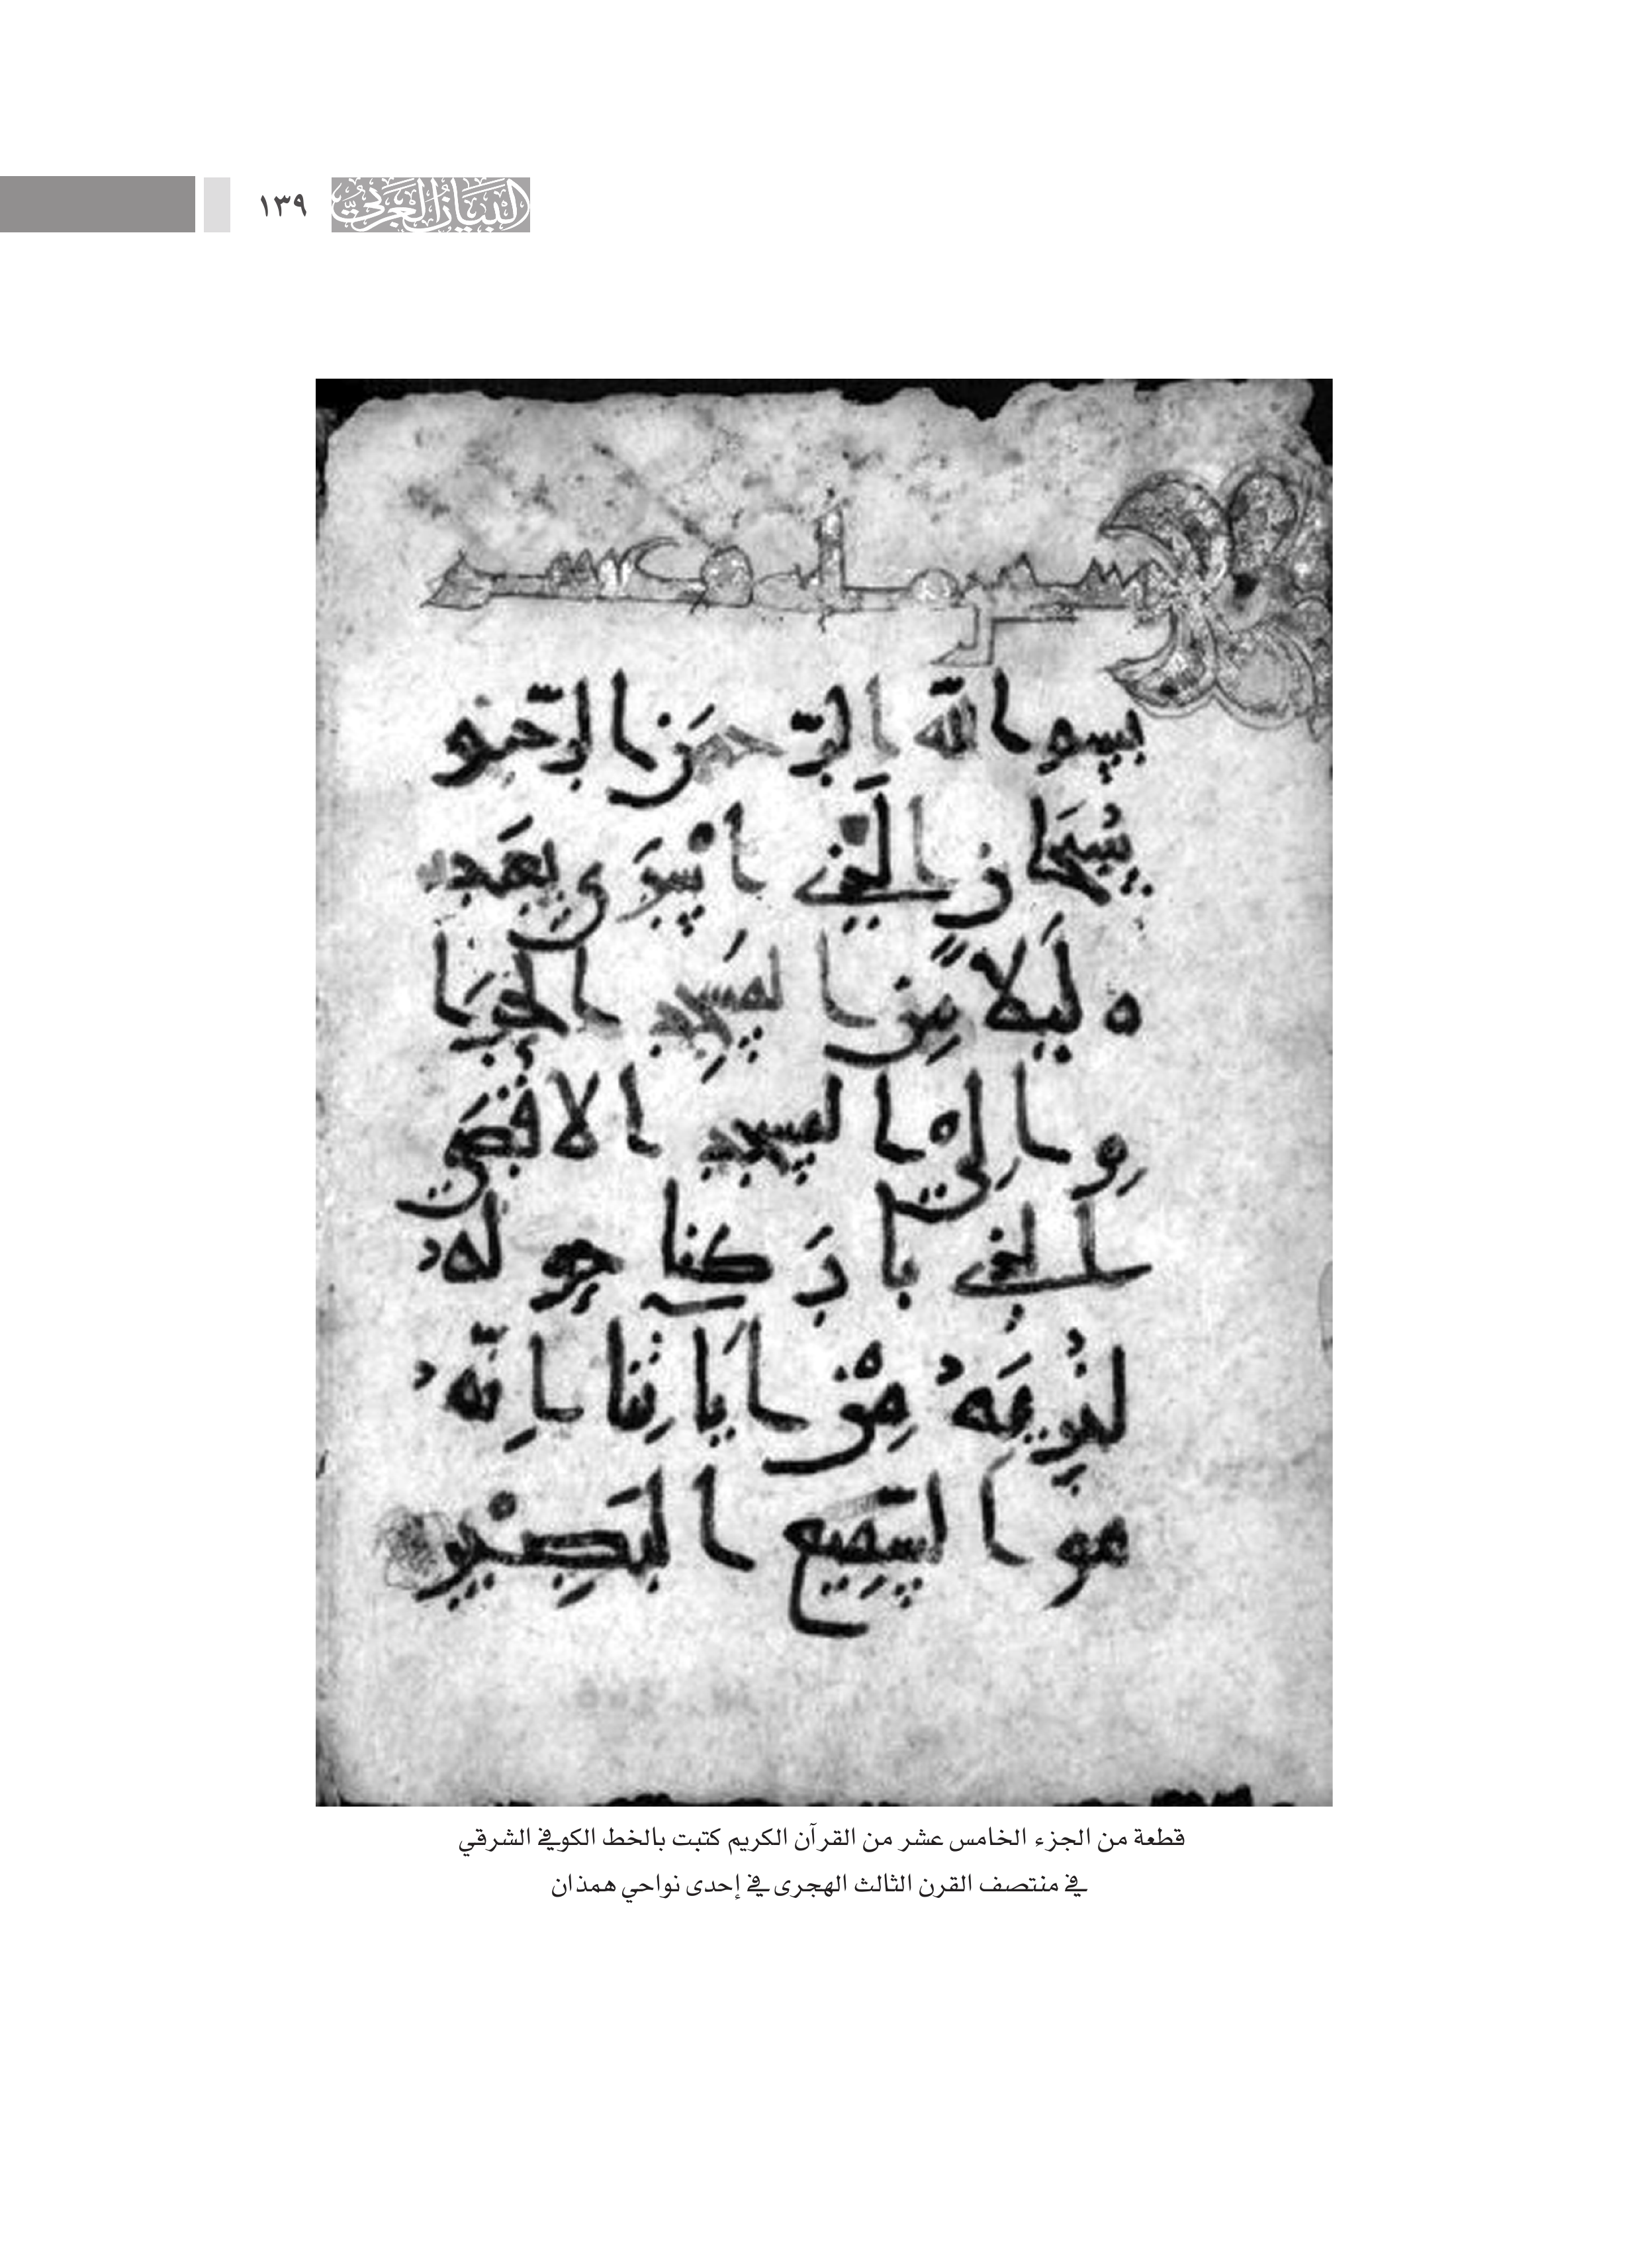 البيان العربي ١٣٩
بسم الله الرحمن الرحيم
سُبحان الذي أسرى بعبد
ه ليلاً من المسجد الحرا
م إلى المسجد الأقصى
الذي باركنا حوله
لنريه من آياتنا إنه
هو السميع البصير
قطعة من الجزء الخامس عشر من القرآن الكريم كتبت بالخط الكوفي الشرقي
في منتصف القرن الثالث الهجرى في إحدى نواحي همذان